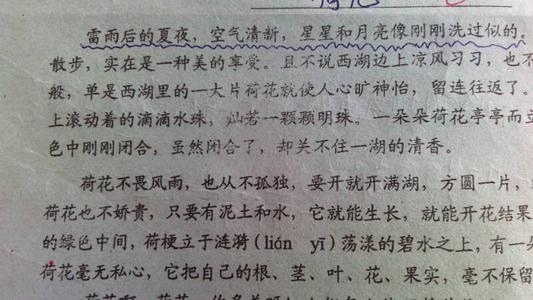 雷雨后的夏夜，空气清新，星星和月亮像刚刚洗过似的。
散步，实在是一种美的享受。且不说西湖边上凉风习习，也不
般，单是西湖里的一大片荷花就使人心旷神怡，留连往返了。
上滚动着的滴滴水珠，灿若一颗颗明珠。一朵朵荷花亭亭而立
色中刚刚闭合，虽然闭合了，却关不住一湖的清香。
荷花不畏风雨，也从不孤独，要开就开满湖，方圆一片，
荷花也不娇贵，只要有泥土和水，它就能生长，就能开花结果
的绿色中间，荷梗立于涟漪(lián yī)荡漾的碧水之上，有一朵
荷花毫无私心，它把自己的根、茎、叶、花、果实，毫不保留